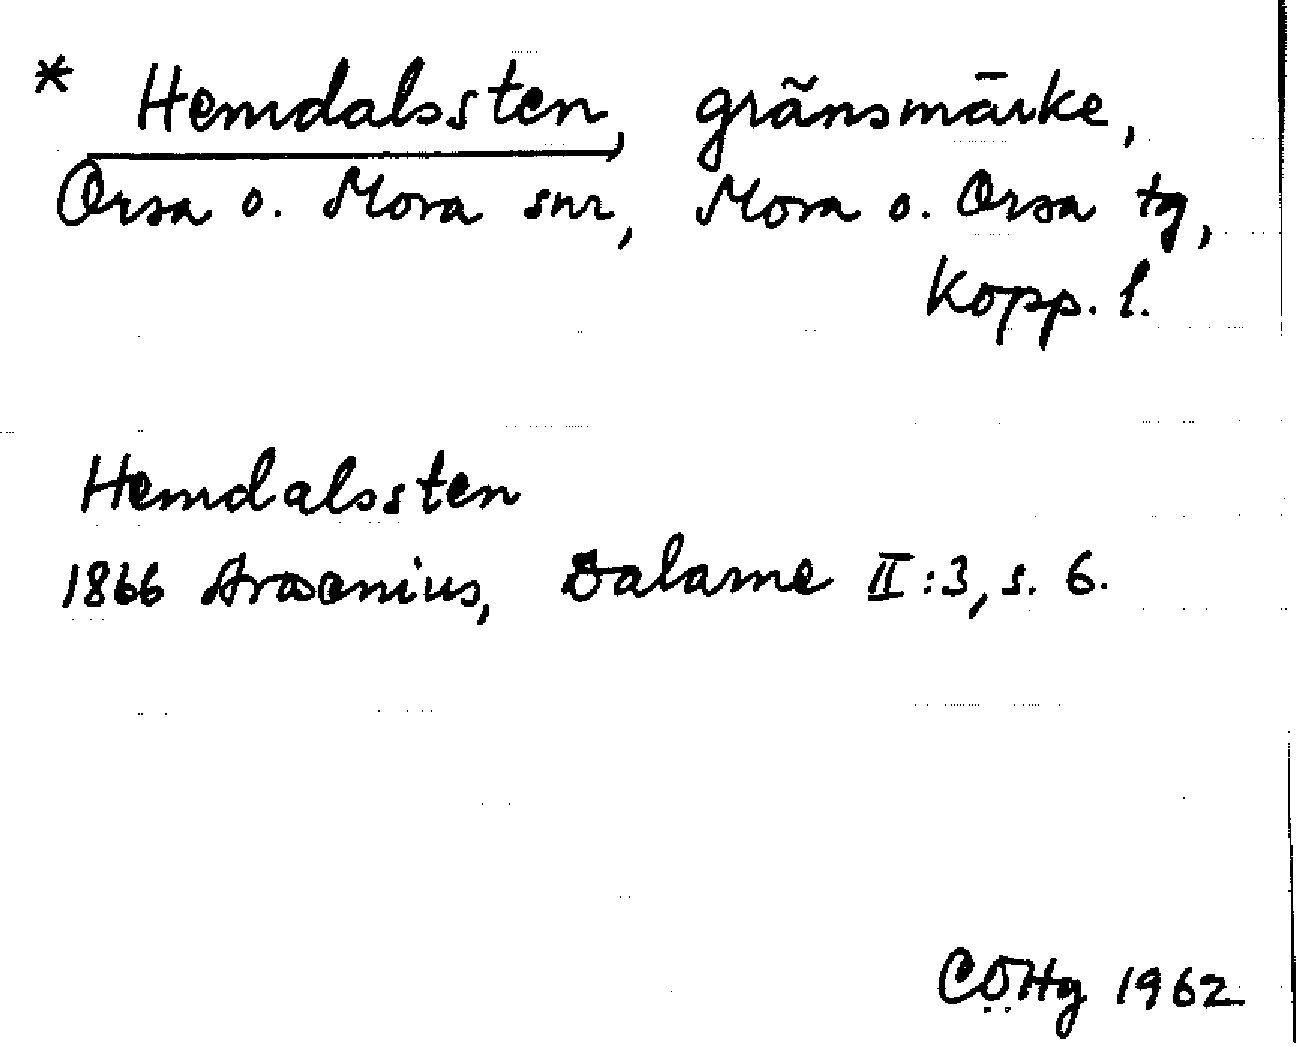 * Hemdalssten, gränsmärke,
Orsa o. Mora snr, Mora o. Orsa tg,
Kopp. l.
Hemdalssten
1866 Arosenius, Dalarne II:3, s. 6.
CÖHg 1962